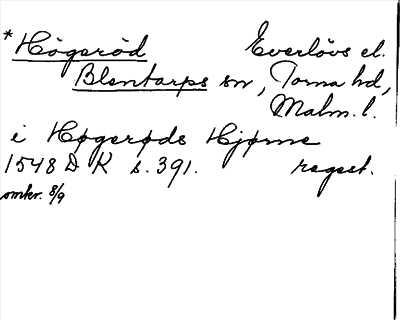 *Högeröd Everlövs el.
Blentarps sn, Torna hd,
Malm. l.
i Høgerøds Hjørne
1548 D K s. 391. regest.
omkr. 8/9